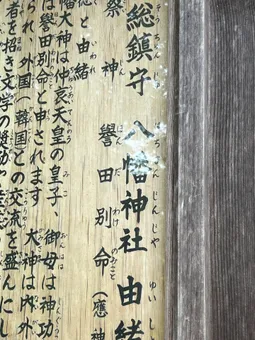 総鎮守 八幡神社 由緒
祭神 誉田別命(應神
徳と由緒
幡大神は仲哀天皇の皇子、御母は神功
は誉田別命と申されます 大神は内外
られ、外国(韓国)との交流を盛んにし
者を招き文学の奨励や